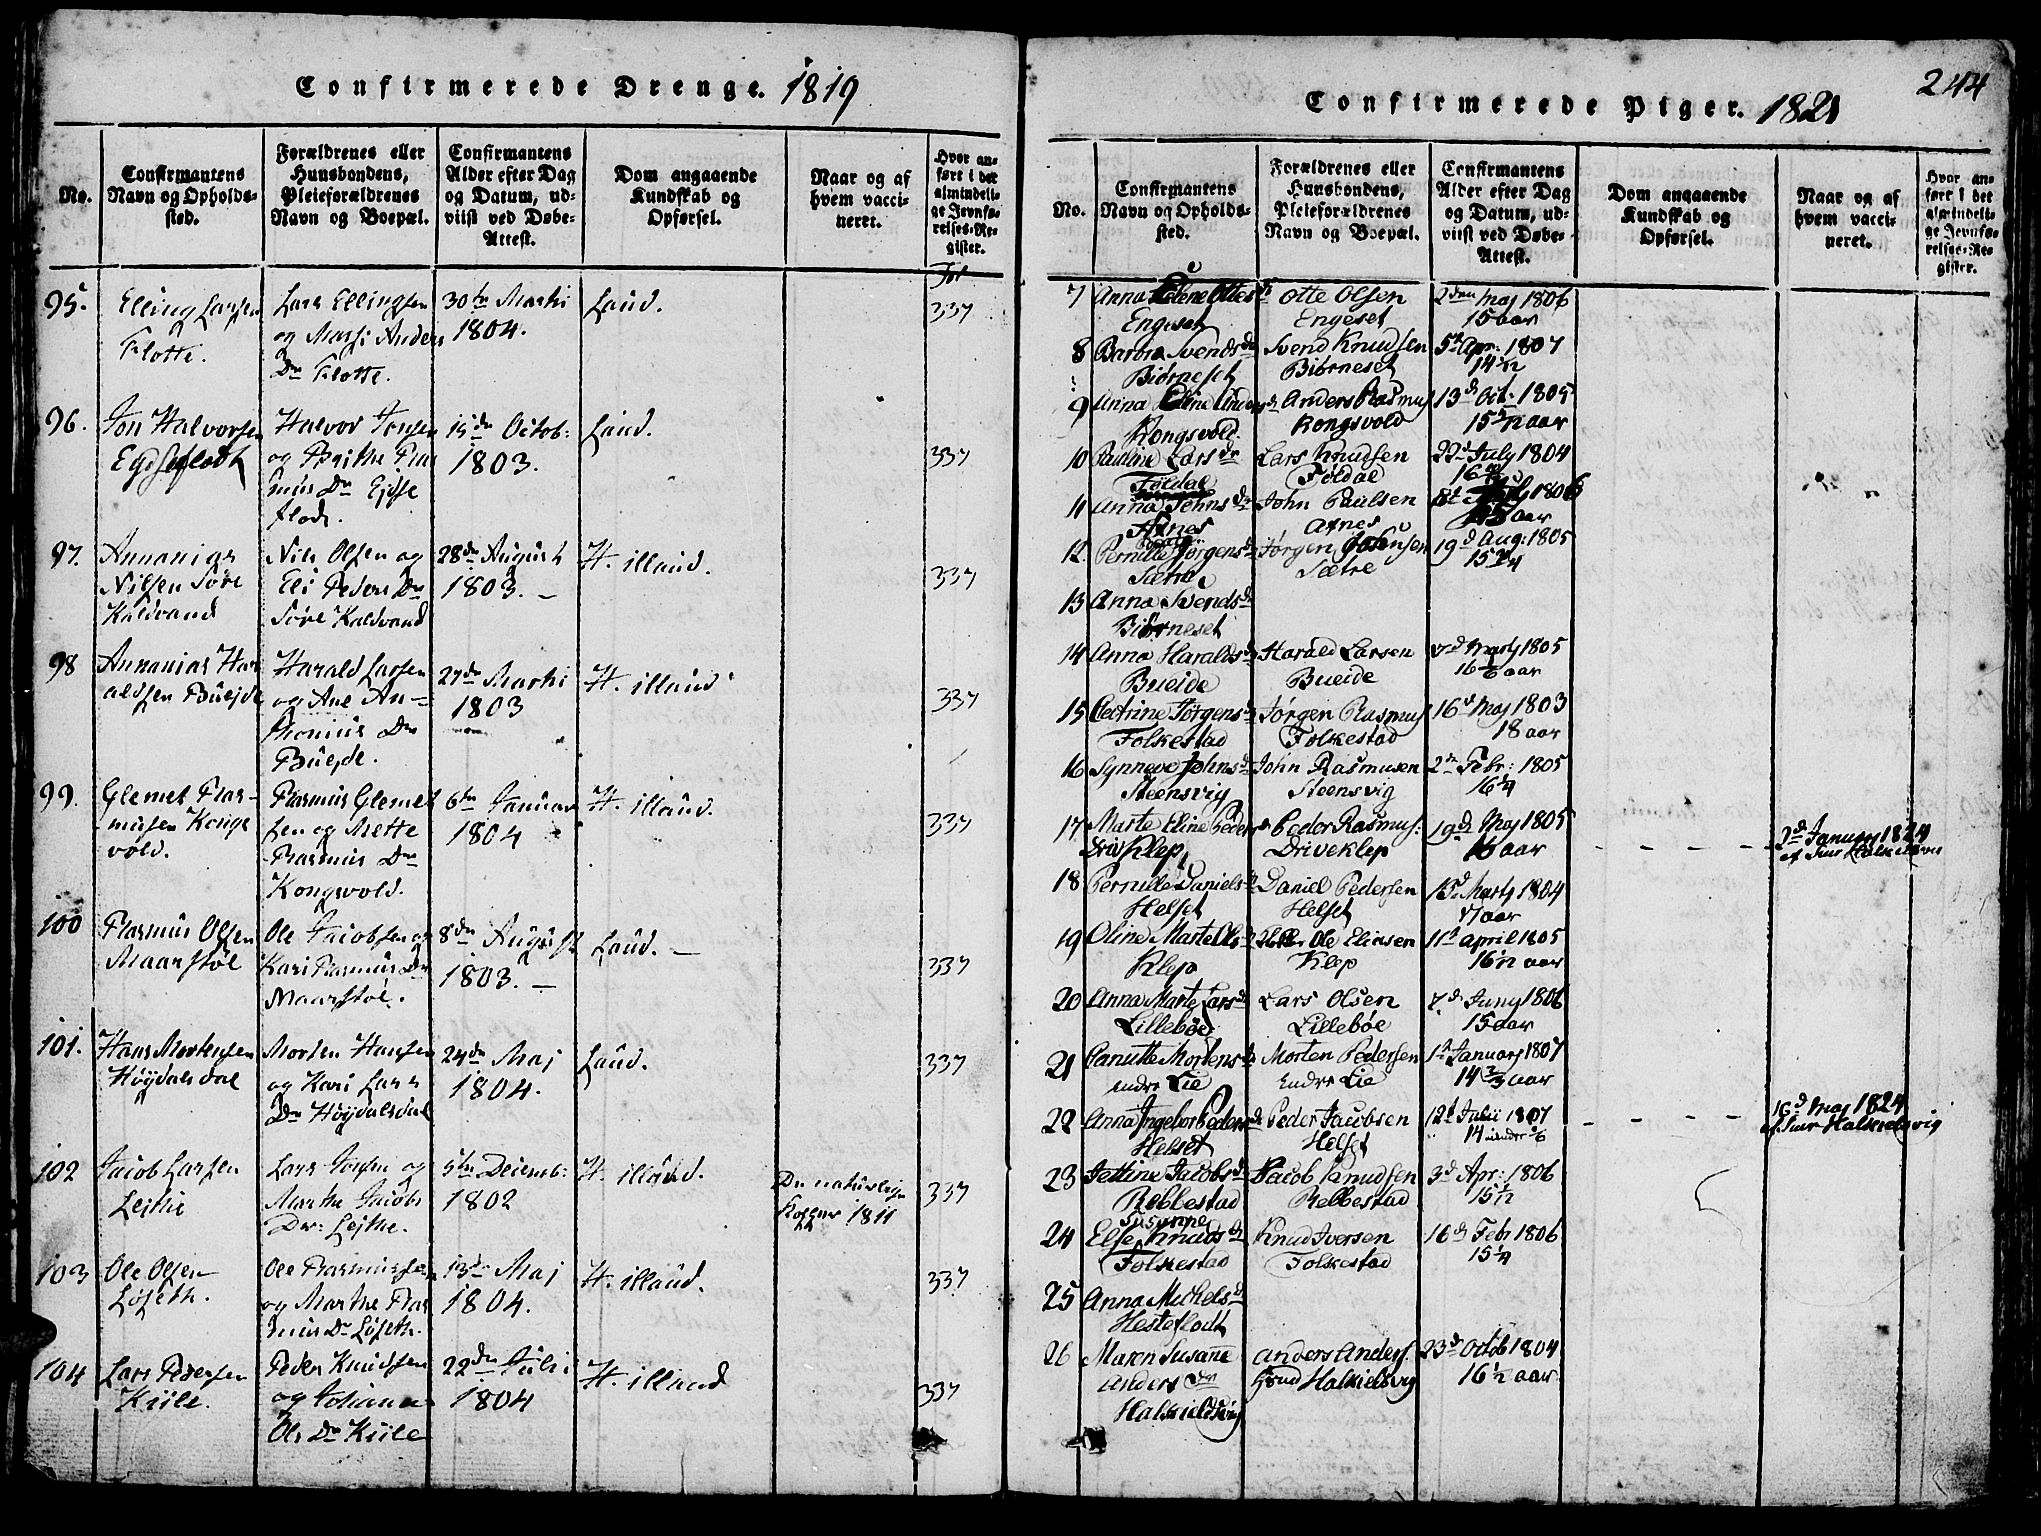 Confirmerede Drenge. 1819
No.
Confirmantens
Navn og Opholds-
sted.
Forældrenes eller
Huusbondens,
Pleieforældrenes
Navn og Boepæl.
Confirmantens
Alder efter Dag
og Datum, ud-
viist ved Døbe-
Attest.
Dom angaaende
Kundskab og
Opførsel.
Naar og af
hvem vacci-
neret.
Hvor an-
ført i det
almindeli-
ge Jevnfø-
relses-Re-
gister.
95.
Elling Larsen
Flotte.
Lars Ellingsen
og Anders
Dr Flotte.
30te Martii
1804.
Laud.
337
96.
Jon Halvorsen
Halvor Jonsen
og Ras
mus Dr
flode.
15de Octob:
1803.
Laud.
337
97.
Annanias
Nilsen Søre
Kaldvand
Nils Olsen og
Eli Peders Dr
Søre Kaldvand
28de August
1803. –
H. illaud.
337
98
Annanias Har
aldsen Buejde
Harald Larsen
og Ane An=
thonius Dr
Buejde.
27de Martii
1803
H. illaud
337
99.
Glemet Ras-
musen Kongs
vold.
Rasmus Glemet
sen og Mette
Rasmus Dr
Kongsvold.
6te Januar
1804
H. illaud.
337
100
Rasmus Olsen
Maarstøl
Ole Jacobsen og
Kari Rasmus Dr
Maarstøl.
8de August
1803. –
Laud. –
337
101.
Hans Mortensen
Høydalsdal
Morten Hansen
og Kari Lars
Dr Høydalsdal
24de Maj
1804.
Laud.
337
102
Jacob Larsen
Lejthe
Lars Jonsen og
Marthe Jacobs
Dr: Lejthe.
5te Decemb:
1802
H. illaud.
De naturlige
Kopper 1811
337
103
Ole Olsen
Løseth.
Ole Rasmussen
og Marthe Ras
mus Dr Løseth.
13de Maj
1804.
H. illaud.
337
104
Lars Pedersen
Kiile.
Peder Knudsen
og Johanne
Ols Dr Kiile
22de Julii
1804
H. illaud
337
244
Confirmerede Piger. 1821
No.
Confirmantens
Navn og Opholds-
sted.
Forældrenes eller
Huusbondens,
Pleieforældrenes
Navn og Boepæl.
Confirmantens
Alder efter Dag
og Datum, ud-
viist ved Døbe-
Attest.
Dom angaaende
Kundskab og
Opførsel.
Naar og af
hvem vacci-
neret.
Hvor an-
ført i det
almindeli-
ge Jevnfø-
relses-Re-
gister.
7
Anna Ottes dr
Engeset
Otte Olsen
Engeset
2den Maj 1806
15 aar
8
Barbra Svends dr
Biørneset
Svend Knudsen
Biørneset
5te Apr: 1807
14 1/12
9
Anna Eline Anders dr
Kongsvold.
Anders Rasmus
Kongsvold
13de Oct: 1805
10
Pauline Lars dr
Føldal
Lars Knudsen
Føldal
22de July 1804
11
Anna Johns dr
Aasnes
John Paulsen
1806
15 aar
12
Pernille Jørgens dr
Sætre
Jørgen
Sætre
19de Aug: 1805
15 3/4
13
Anna Svends dr
Biørneset
14
Anna Haralds dr
Bueide
Harald Larsen
Bueide
Marty 1805
16 1/6 aar
15
Jørgens dr
Folkestad
Jørgen Rasmus
Folkestad
16de Maj 1803
18 aar
16
Synneve Johns dr
Steensvig
John Rasmusen
Steensvig
2den Febr: 1805
16 1/4
17
Marte Eline Peders dr
Driveklep
Peder Rasmus:
Driveklep
19de Maj 1805
16 aar
2de January 1824
af Halkielsvig
18
Pernille Daniels dr
Helset
Daniel Pedersen
Helset
15de Marty 1804
17 aar
19
Oline Marte Ols dr
Klep
Ole Eliasen
Klep
11te April 1805
16 1/12 aar
20
Anna Marte Lars dr
Lillebøe
Lars Olsen
Lillebøe
7de Juny 1806
15 aar
21
Canutte Mortens dr
Indre Lie
Morten Pedersen
Indre Lie
1te January 1807
14 aar
22
Anna Ingebor Peders dr
Helset
Peder Jacobsen
Helset
12te Julii 1807
14 mindre 1/6
16de Maj 1824
af Halkielsvig
23
Jettine Jacobs dr
Rebbestad
Jacob Knudsen
Rebbestad
3de Apr: 1806
15 1/12
24
Susanne
Else Knuds dr
Folkestad
Knud Iversen
Folkestad
16de Febr 1806
15 1/4
25
Anna Michels dr
Hesteflodt
26
Maren Susane
Anders dtr
Halkieldsvig
Anders Anders:
Halkielsvig
23de Octob 1804
16 1/2 aar